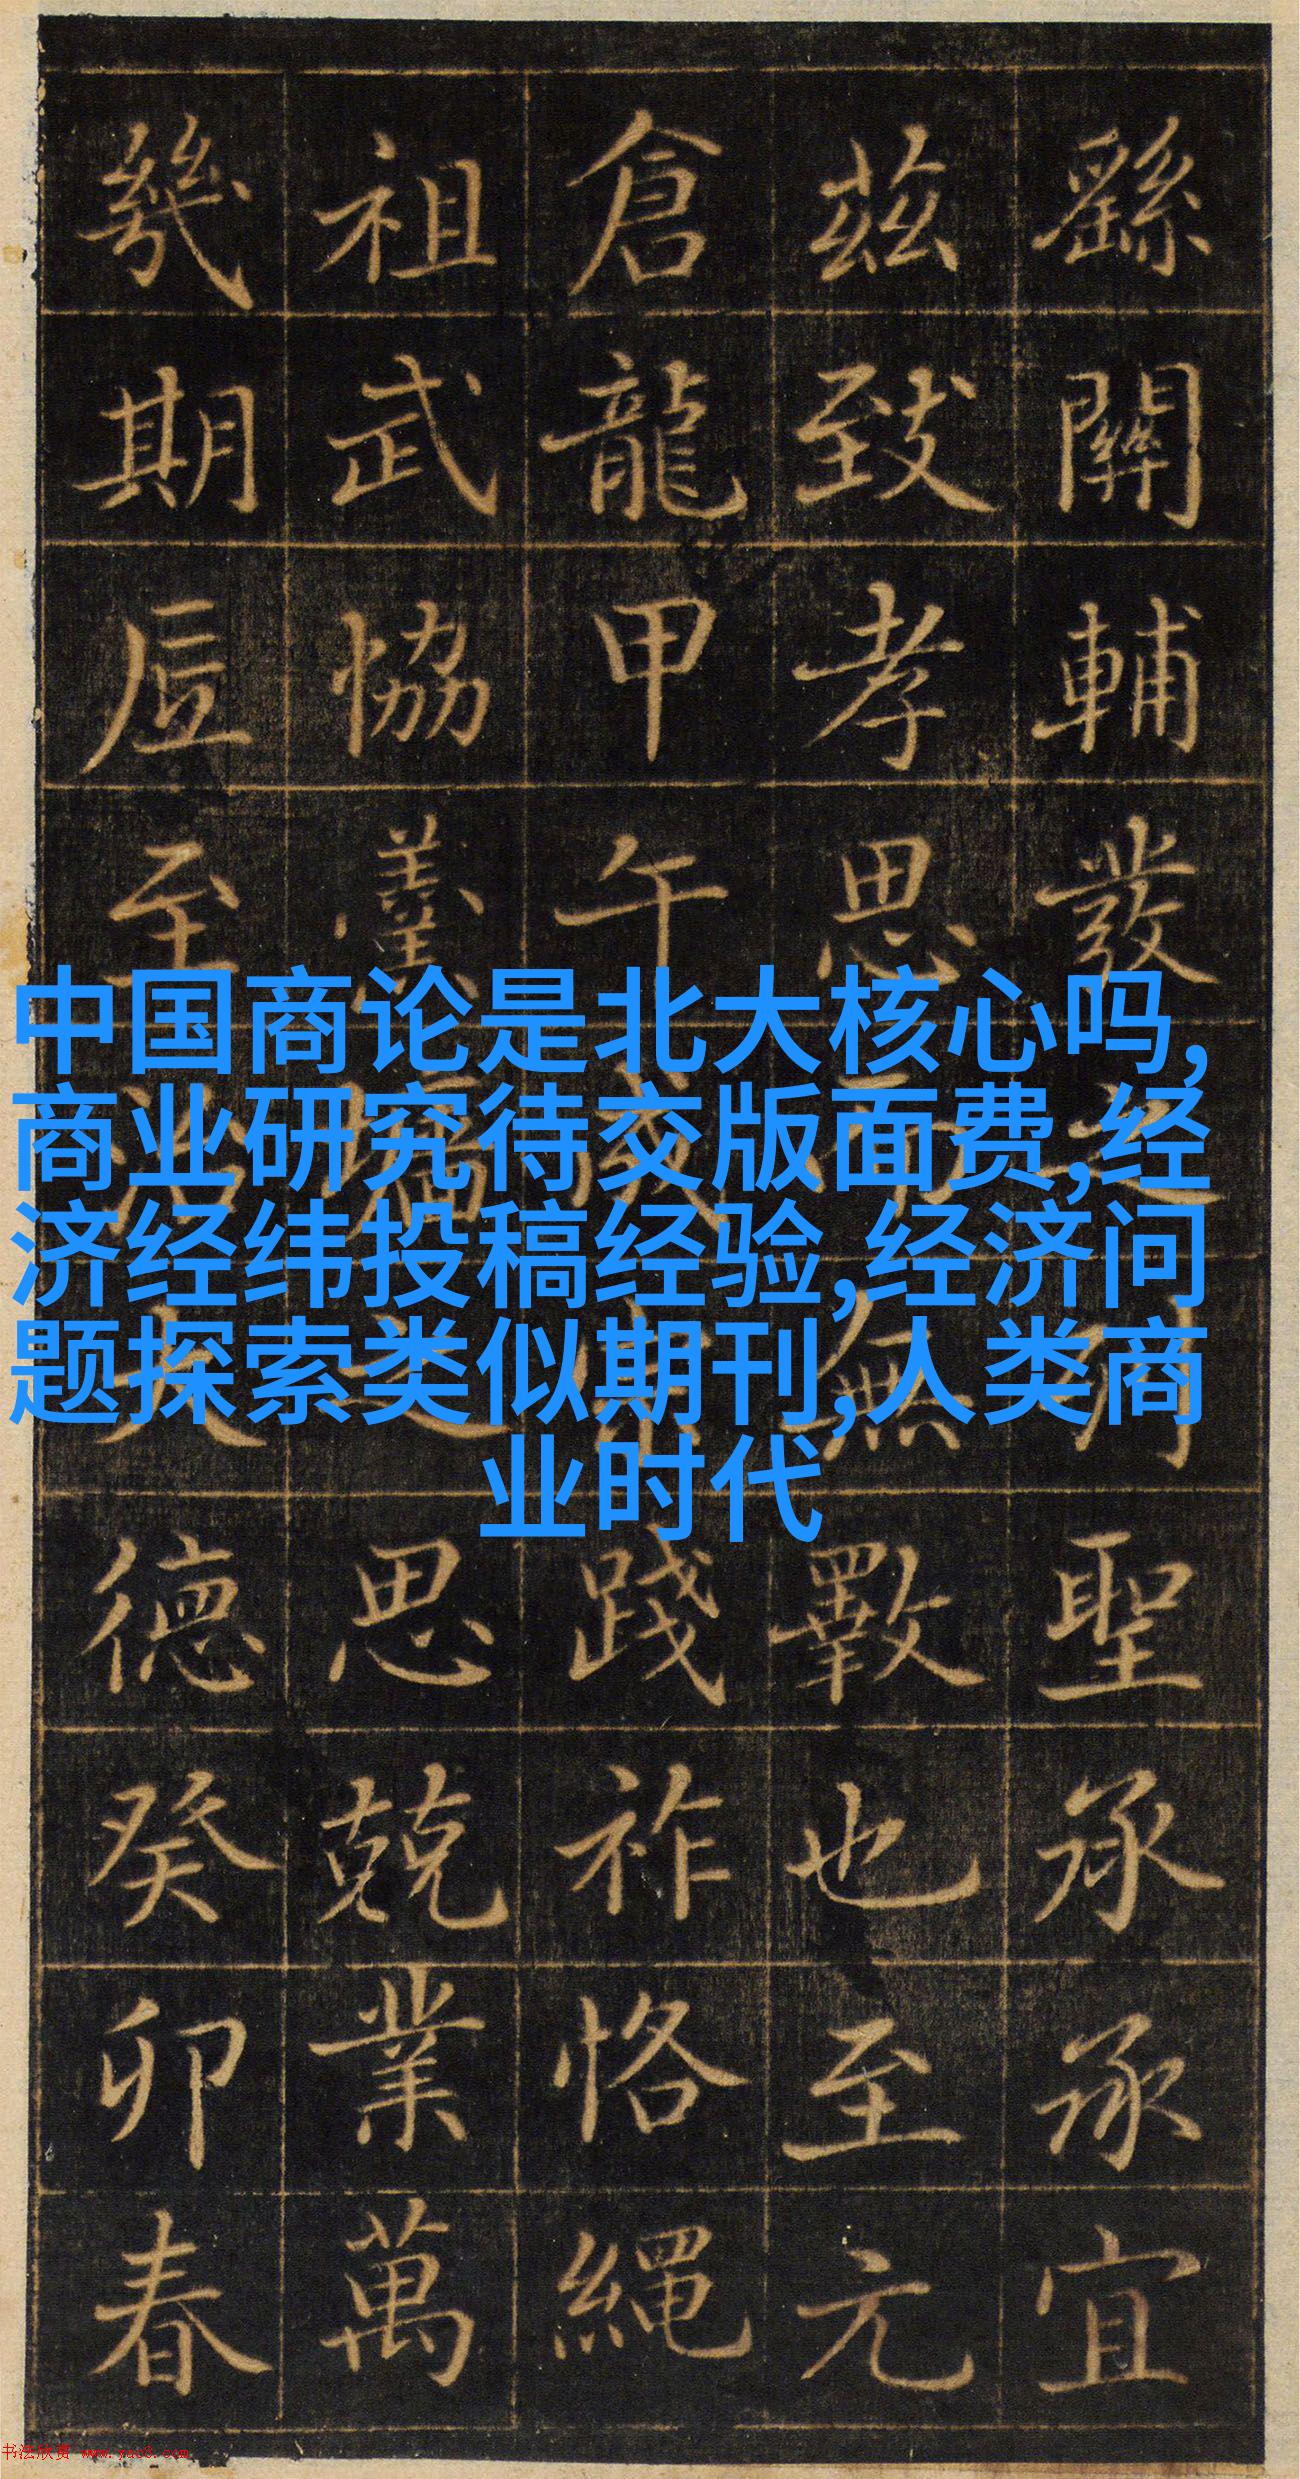 繇關輔發之聖承承宜
茲致孝思而無斁也至元
倉龍甲午成宗踐祚恪繩
祖武協羹墻之思兢業萬
幾期底至治大德癸卯春
中国商论是北大核心吗,
商业研究待交版面费,经
济经纬投稿经验,经济问
题探索类似期刊,人类商
业时代
书法欣赏 www.yac8.com